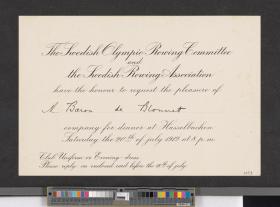 The Swedish Olympic Rowing Committee
and
the Swedish Rowing Association
have the honour to request the pleasure of
M Baron de Blonnet
company for dinner at Hasselbacken
Saturday the 20th of july 1912 at 8 p.m.
Club Uniform or Evening-dress
Please reply on enclosed card before the 10th of july